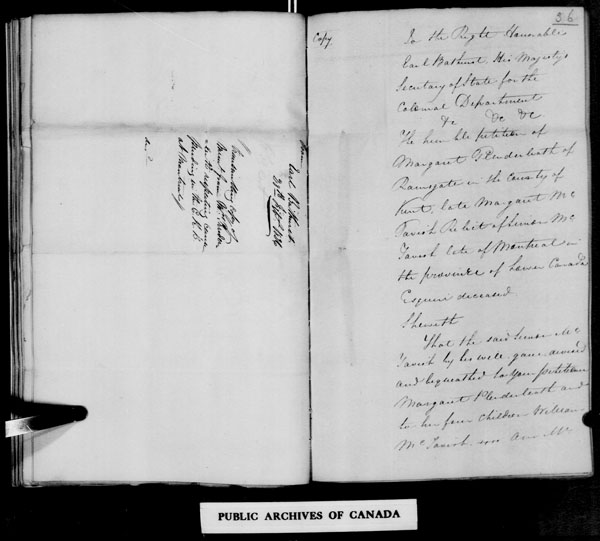 From
Earl Bathurst
Transmitting copy of
pending in the C. K. B.
at Montreal
36
Copy.
To the Right Honorable
Earl Bathurst His Majesty's
Secretary of State for the
Colonial Department
&c &c &c
The humble petition of
Margaret Plenderleath of
Ramsgate in the county of
Kent, late Margaret Mc
Tavish Relict of Simon Mc
Tavish late of Montreal in
the province of Lower Canada
Esquire deceased
Sheweth
That the said Simon Mc
Tavish by his will gave devised
and bequeathed to Your petitioner
Margaret Plenderleath and
to her four children William
Mc Tavish Ann Mc
PUBLIC ARCHIVES OF CANADA